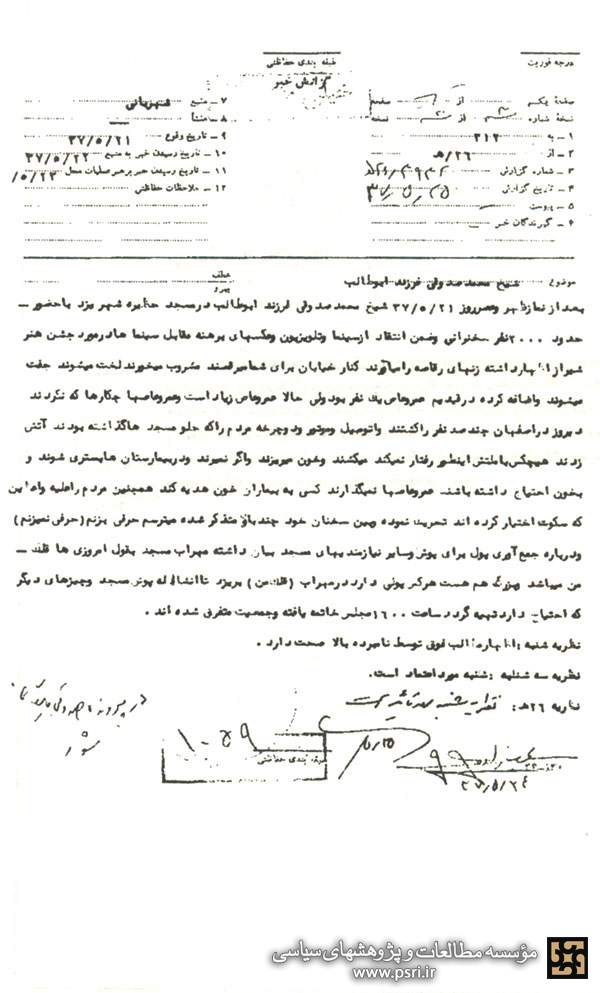 درجه فوریت
طبقه بندی حفاظتی
گزارش خبر
صفحه یکم از صفحه
نسخه شماره از نسخه
۱ ـ به ۳۱۲
۲ ـ از ۲۶/ه
۳ ـ شماره گزارش
۴ ـ تاریخ گزارش ۳۷/۵/۲۵
۵ ـ پیوست
۶ ـ گیرندگان خبر
۷ ـ منبع شهربانی
۸ ـ منشأ
۹ ـ تاریخ وقوع ۳۷/۵/۲۱
۱۰ ـ تاریخ رسیدن خبر به منبع ۳۷/۵/۲۲
۱۱ ـ تاریخ رسیدن خبر برهبر عملیات محل ۵/۲۳/
۱۲ ـ ملاحظات حفاظتی
موضوع شیخ محمد صدوقی فرزند ابوطالب
عطف
پیرو
بعد از نماز ظهر و عصر روز ۳۷/۵/۲۱ شیخ محمد صدوقی فرزند ابوطالب در مسجد حظیره شهر یزد با حضور ـ
حدود ۲۰۰۰ نفر سخنرانی وضمن انتقاد از سینما وتلویزیون وعکسهای برهنه مقابل سینما ها در مورد جشن هنر
شیراز اظهار داشته زنهای رقاصه را میآورند کنار خیابان برای شما میرقصند مشروب میخورند لخت میشوند جفت
میشوند واضافه کرده در قدیم عمروعاص یک نفر بود ولی حالا عمروعاص زیاد است وعمروعاصها چکارها که نکردند
دیروز در اصفهان چند صد نفر را کشتند واتومبیل وموتور ودوچرخه مردم را که جلو مسجد ها گذاشته بودند آتش
زدند هیچکس با ملتش اینطور رفتار نمیکند میکشند وخون میریزند واگر نمیرند ودر بیمارستان ها بستری شوند و
بخون احتیاج داشته باشند عمروعاصها نمیگذارند کسی به بیماران خون هدیه کند همچنین مردم را علیه واعظین
که سکوت اختیار کرده اند تحریک نموده وبین سخنان خود چند بار متذکر شده میترسم حرفی بزنم (حرفی نمیزنم)
ودرباره جمع آوری پول برای پوش وسایر نیازمندیهای مسجد بیان داشته مهراب مسجد بقول امروزی ها قلک ـ
من میباشد وبزرگ هم هست هرکس پولی دارد در مهراب (قلک من) بریزد تا انشااله پوش مسجد وچیزهای دیگر
که احتیاج دارد تهیه گردد ساعت ۱۶۰۰ مجلس خاتمه یافته وجمعیت متفرق شده اند .
نظریه شنبه : اظهارمطالب فوق توسط نامبرده بالا صحت دارد .
نظریه سه شنبه : شنبه مورد اعتماد است.
نظریه ۲۶ه : نظریه شنبه مورد تائید است
در پرونده صدوقی بایگانی
شود
۵/۲۵
۳۷/۵/۲۴
طبقه بندی حفاظتی
مؤسسه مطالعات و پژوهشهای سیاسی
www.psri.ir